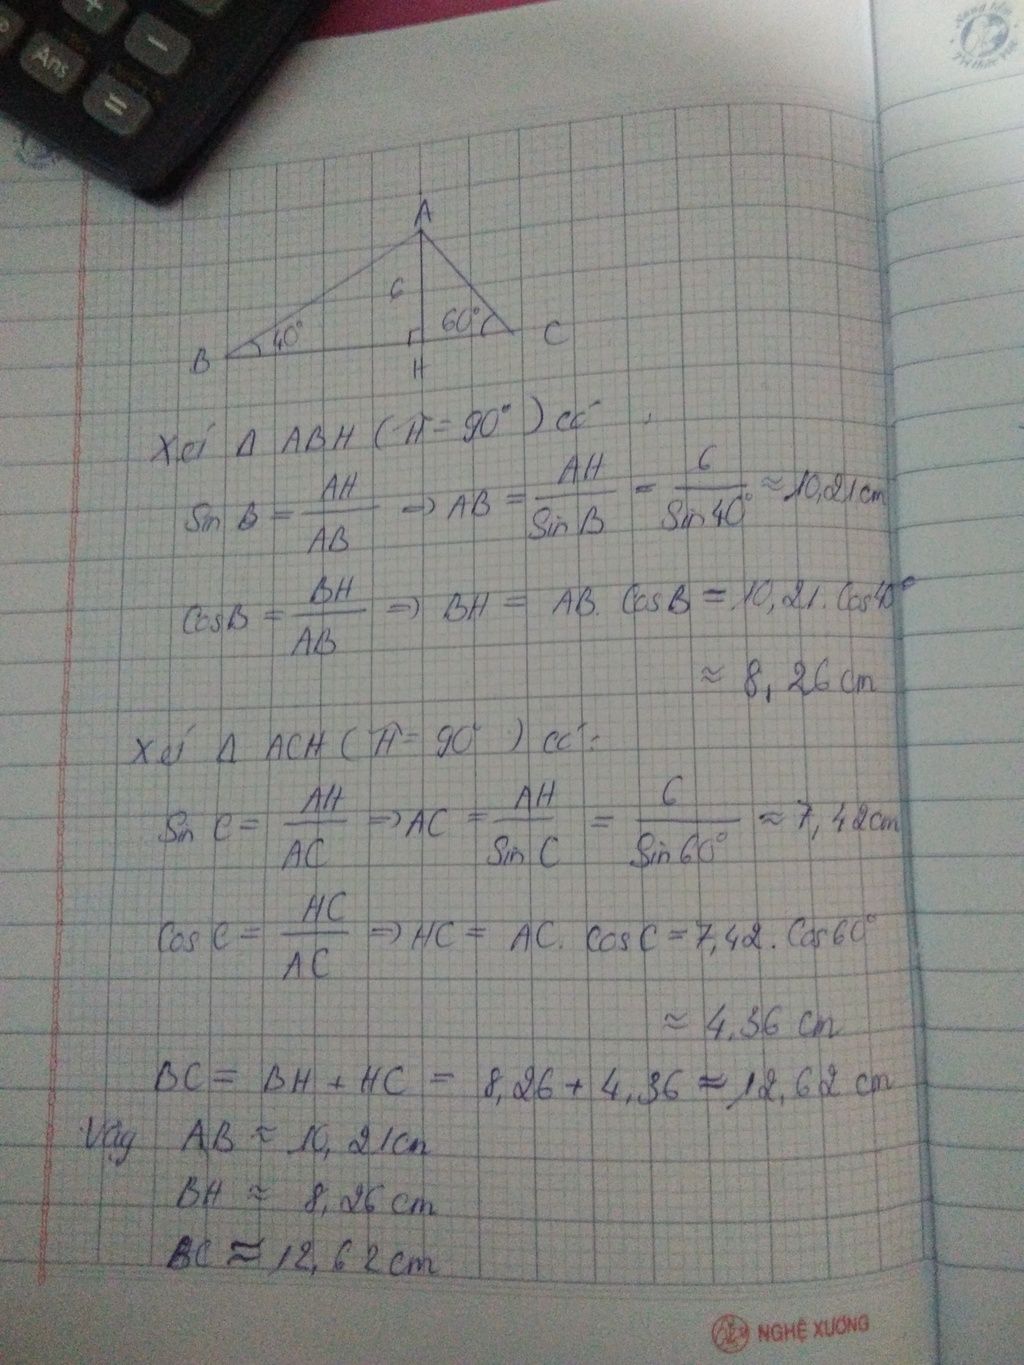 Ans
=
A
6
40°
60°
B
H
C
Xét Δ ABH (Ĥ = 90°) có
Sin B = AH/AB => AB = AH/Sin B = 6/Sin 40° ≈ 10,21 cm
Cos B = BH/AB => BH = AB. Cos B = 10,21. Cos 40°
≈ 8,26 cm
Xét Δ ACH (Ĥ = 90°) có:
Sin C = AH/AC => AC = AH/Sin C = 6/Sin 60° ≈ 7,42 cm
Cos C = HC/AC => HC = AC. Cos C = 7,42. Cos 60°
≈ 4,36 cm
BC = BH + HC = 8,26 + 4,36 ≈ 12,62 cm
Vậy AB ≈ 10,21 cm
BH ≈ 8,26 cm
BC ≈ 12,62 cm
NGHỆ XƯƠNG